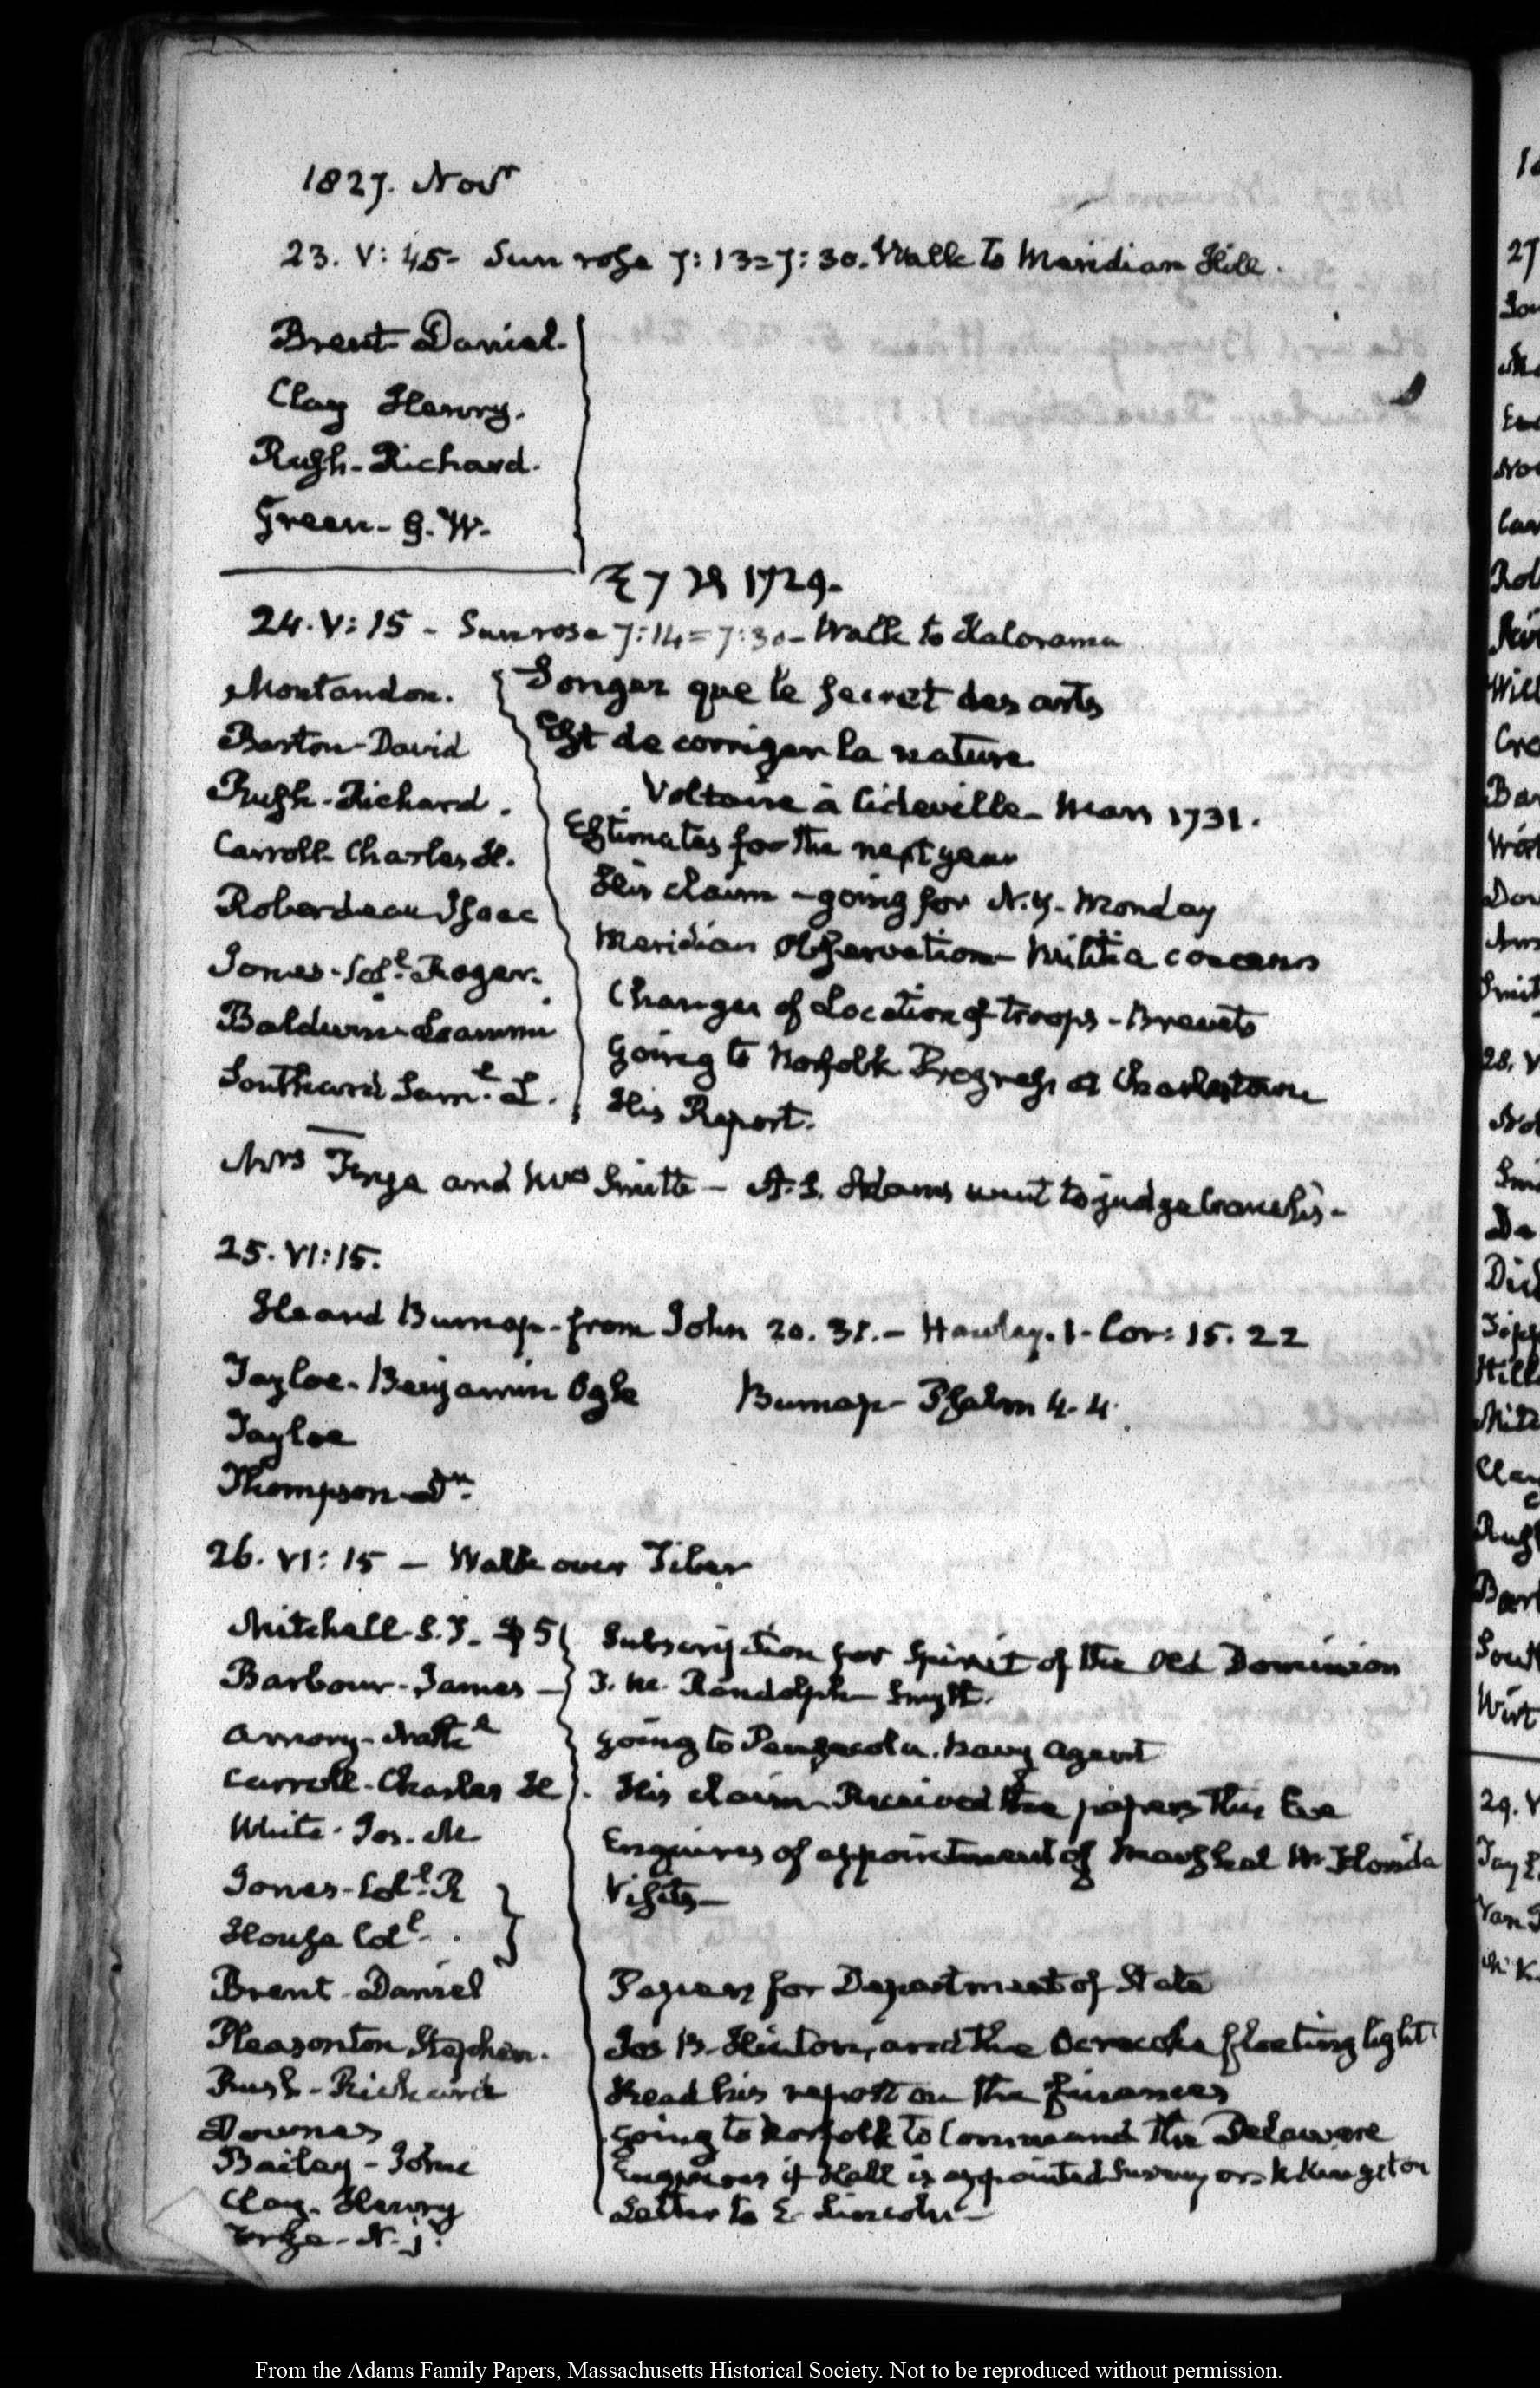 1827. Novr
23. V: 45- Sun rose 7: 13=7: 30. Walk to Meridian Hill.
Brent Daniel.
Clay Henry.
Rush-Richard.
Green- G. W.
1729.
24. V: 15 - Sun rose 7: 14=7: 30- Walk to Kalorama
Montandon. Songez que le secret des arts
Barton-David Est de corriger la nature
Voltaire à Cideville-Mars 1731.
Rush-Richard. Estimates for the next year
Carroll-Charles H. His claim -going for N.Y. Monday
Roberdeau Isaac Meridian Observation-Militia concerns
Jones-Coll. Roger. Changes of Location of troops-Brevets
Baldwin-Loammi Going to Norfolk Progress at Charlestown
Southard Saml. L. His Report.
Mrs Frye and Mrs Smith- A. S. Adams went to judge Cranch's-
25. VI: 15.
Heard Burnap-from John 20. 31.- Hawley. 1- Cor: 15. 22
Tayloe-Benjamin Ogle Burnap-Psalm 4. 4.
Tayloe
Thompson-Dr.
26. VI: 15 - Walk over Tiber
Mitchell-S. T. $5 Subscription for Spirit of the Old Dominion
Barbour-James- T. M. Randolph- Smyth.
Amory-Nathl going to Pensacola. Navy Agent
Carroll-Charles H. His claim-Received the papers this Eve
White-Jos. M Enquires of appointment of Marshal W. Florida
Jones-Coll. R Visits-
House Coll.
Brent-Daniel Papers for Department of State
Pleasonton Stephen. Jos B. Hinton, and the Ocracoke floating light
Rush-Richard Read his report on the finances
Downes going to Norfolk to Command the Delaware
Bailey-John Enquires if Hall is appointed Surveyor Kingston
Clay-Henry Letter to E Lincoln-
Frye-N. jr.
From the Adams Family Papers, Massachusetts Historical Society. Not to be reproduced without permission.